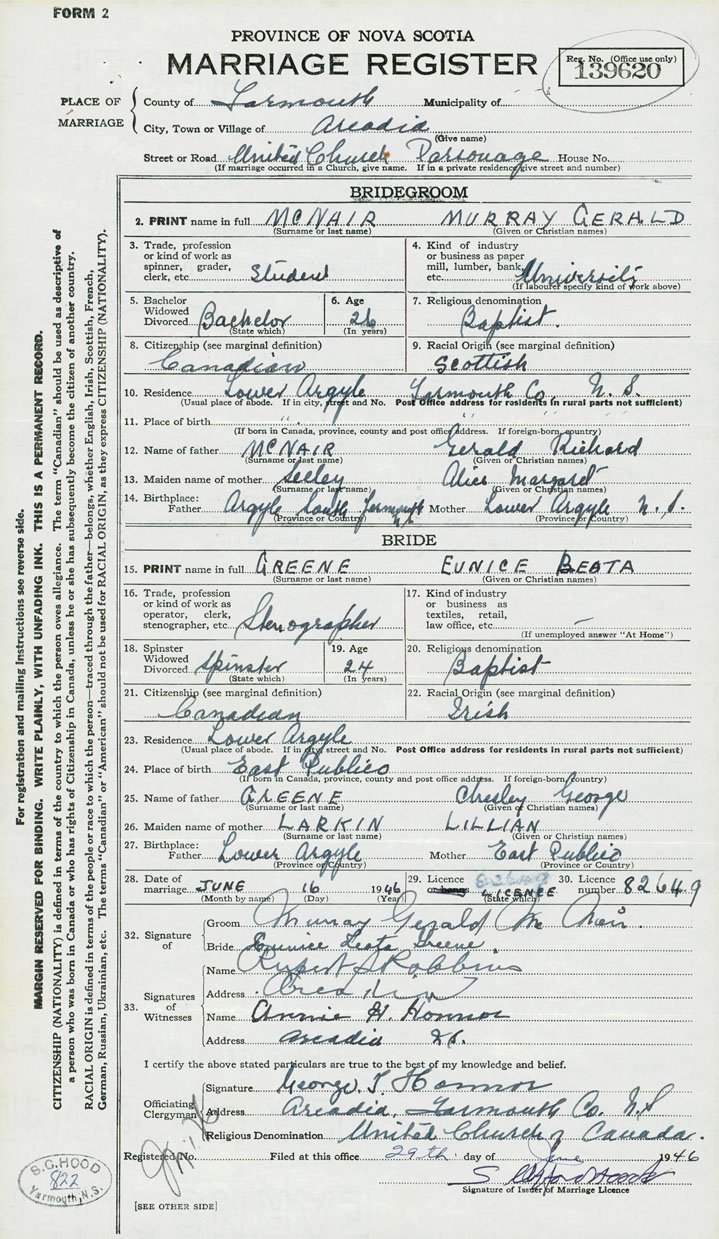 FORM 2
PROVINCE OF NOVA SCOTIA
MARRIAGE REGISTER
Reg. No. (Office use only)
139620
PLACE OF MARRIAGE
County of Yarmouth Municipality of
City, Town or Village of Arcadia
(Give name)
Street or Road United Church Parsonage House No.
(If marriage occurred in a Church, give name. If in a private residence, give street and number)
BRIDEGROOM
2. PRINT name in full MCNAIR MURRAY GERALD
(Surname or last name) (Given or Christian names)
3. Trade, profession or kind of work as spinner, grader, clerk, etc. Student
4. Kind of industry or business as paper mill, lumber, bank, etc. University
(If labourer specify kind of work above)
5. Bachelor Widowed Divorced Bachelor
(State which)
6. Age 26
(In years)
7. Religious denomination
Baptist.
8. Citizenship (see marginal definition)
Canadian
9. Racial Origin (see marginal definition)
Scottish
10. Residence Lower Argyle Yarmouth Co. N. S.
(Usual place of abode. If in city, street and No. Post Office address for residents in rural parts not sufficient)
11. Place of birth " "
(If born in Canada, province, county and post office address. If foreign-born, country)
12. Name of father MCNAIR Gerald Richard
(Surname or last name) (Given or Christian names)
13. Maiden name of mother Seeley Alice Margaret
(Surname or last name) (Given or Christian names)
14. Birthplace: Father Argyle South Yarmouth Mother Lower Argyle N. S.
(Province or Country) (Province or Country)
BRIDE
15. PRINT name in full GREENE EUNICE BEATA
(Surname or last name) (Given or Christian names)
16. Trade, profession or kind of work as operator, clerk, stenographer, etc. Stenographer
17. Kind of industry or business as textiles, retail, law office, etc. —
(If unemployed answer "At Home")
18. Spinster Widowed Divorced Spinster
(State which)
19. Age 24
(In years)
20. Religious denomination
Baptist
21. Citizenship (see marginal definition)
Canadian
22. Racial Origin (see marginal definition)
Irish
23. Residence Lower Argyle
(Usual place of abode. If in city, street and No. Post Office address for residents in rural parts not sufficient)
24. Place of birth East Pubnico
(If born in Canada, province, county and post office address. If foreign-born, country)
25. Name of father GREENE Chesley George
(Surname or last name) (Given or Christian names)
26. Maiden name of mother LARKIN LILLIAN
(Surname or last name) (Given or Christian names)
27. Birthplace: Father Lower Argyle Mother East Pubnico
(Province or Country) (Province or Country)
28. Date of marriage JUNE 16 1946
(Month by name) (Day) (Year)
29. Licence or LICENCE
(State which)
30. Licence number 82649
32. Signature of
Groom Murray Gerald McNair.
Bride Eunice Beata Greene.
33. Signatures of Witnesses
Name Rupert S Robbins
Address Arcadia
Name Annie H. Honnor
Address Arcadia
I certify the above stated particulars are true to the best of my knowledge and belief.
Officiating Clergyman
Signature George T Honnor
Address Arcadia, Yarmouth Co. N.S
Religious Denomination United Church of Canada.
Registered No. Filed at this office 29th day of June 1946
Signature of Issuer of Marriage Licence
[SEE OTHER SIDE]
S.C. HOOD
822
Yarmouth, N.S.
For registration and mailing instructions see reverse side.
MARGIN RESERVED FOR BINDING. WRITE PLAINLY, WITH UNFADING INK. THIS IS A PERMANENT RECORD.
CITIZENSHIP (NATIONALITY) is defined in terms of the country to which the person owes allegiance. The term "Canadian" should be used as descriptive of
a person who was born in Canada or who has rights of Citizenship in Canada, unless he or she has subsequently become the citizen of another country.
RACIAL ORIGIN is defined in terms of the people or race to which the person—traced through the father—belongs, whether English, Irish, Scottish, French,
German, Russian, Ukrainian, etc. The terms "Canadian" or "American" should not be used for RACIAL ORIGIN, as they express CITIZENSHIP (NATIONALITY).